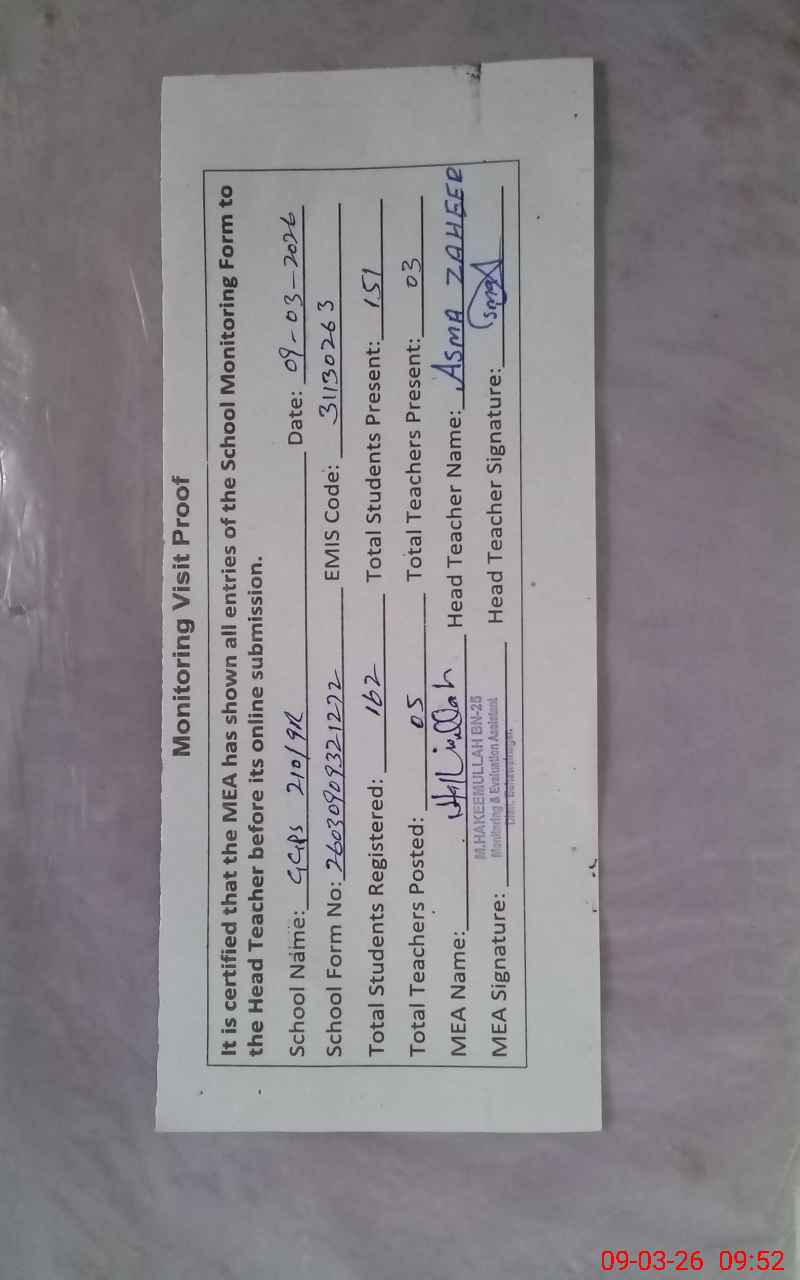 Monitoring Visit Proof
It is certified that the MEA has shown all entries of the School Monitoring Form to
the Head Teacher before its online submission.
School Name: GGPS 210/9R Date: 09-03-2026
School Form No: 26030909321272 EMIS Code: 31130263
Total Students Registered: 162 Total Students Present: 151
Total Teachers Posted: 05 Total Teachers Present: 03
MEA Name: Head Teacher Name: ASMA ZAHEER
M.HAKEEMULLAH BN-25
Monitoring & Evaluation Assistant
Distt. Bahawalnagar.
MEA Signature: Head Teacher Signature:
09-03-26 09:52